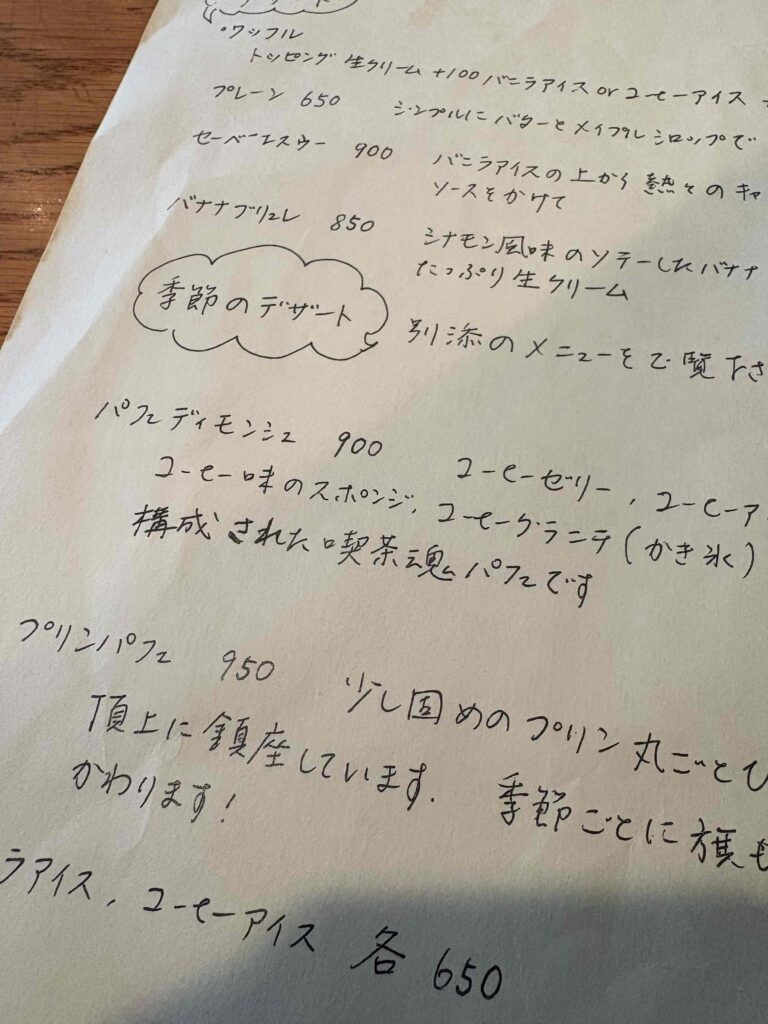 ・ワッフル
トッピング 生クリーム +100 バニラアイス or コーヒーアイス
プレーン 650 シンプルに バターと メイプルシロップで
セーベーエスウー 900 バニラアイスの上から 熱々のキャ
ソースをかけて
バナナブリュレ 850 シナモン風味のソテーしたバナナ
たっぷり生クリーム
季節のデザート 別添のメニューをご覧下さ
パフェ ディモンシュ 900 コーヒーゼリー、コーヒーア
コーヒー味のスポンジ、コーヒーグラニテ(かき氷)
構成された喫茶魂パフェです
プリンパフェ 950 少し固めのプリン 丸ごとひ
頂上に鎮座しています. 季節ごとに旗も
かわります!
ラアイス、コーヒーアイス 各 650